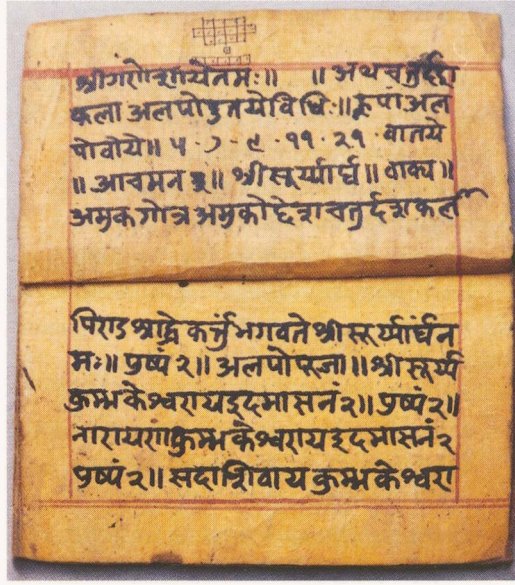 श्रीगणेशायनमः॥ ॥ अथचतुर्द्दश
कला अलपोडुतयेविधिः॥ कूपां अल
पोवोये॥ ५ - ७ - ९ - ११ - २१ - वातये
॥ आचमन ३॥ श्रीसूर्य्यार्घ॥ वाक्य॥
अमुकगोत्र अमुकोद्देश चतुर्दशकल
पिण्डश्राद्धेकर्त्तुं भगवते श्रीसूर्य्यार्घंन
मः॥ पुष्पं २॥ अलपोपूजा॥ श्रीसूर्य्य
कुम्भकेश्वराय इदमासनं २॥ पुष्पं २॥
नारायण कुम्भकेश्वराय इदमासनं २
पुष्पं २॥ सदाशिवाय कुम्भकेश्वरा